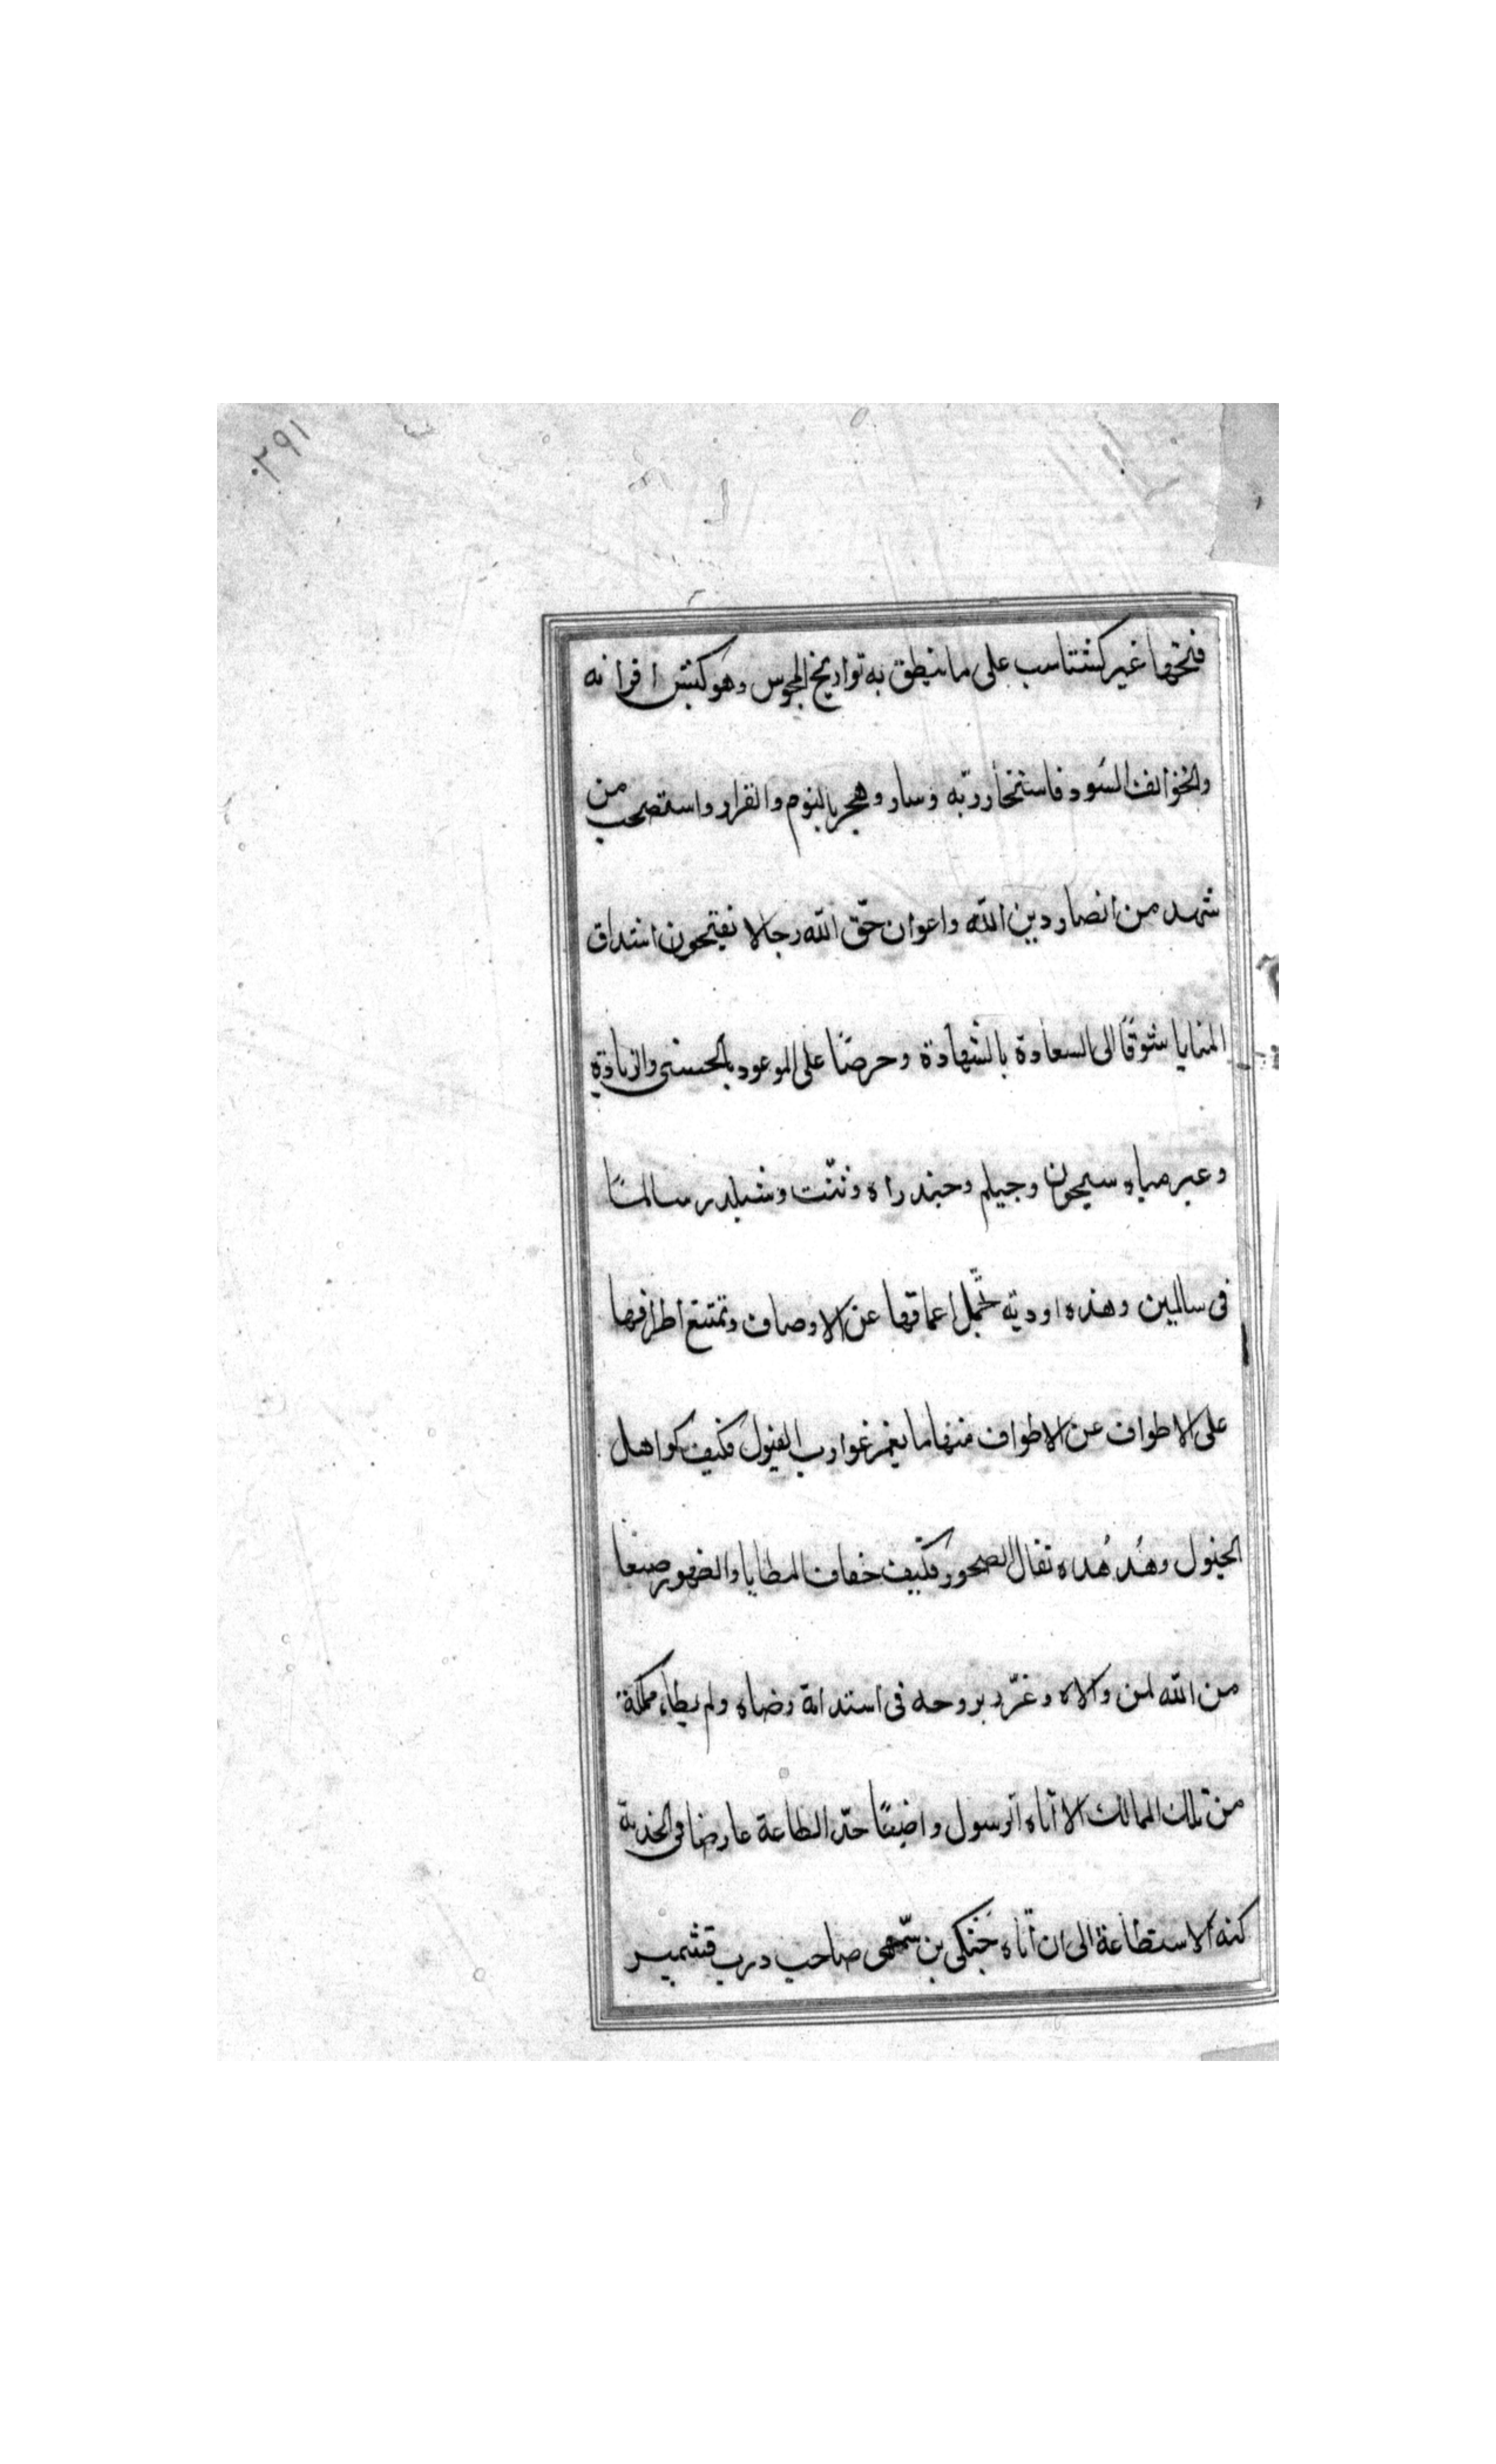 ٢٩١
فتحها غير كشتاسب على ما ينطق به تواريخ المجوس وهو كبش اقرانه
والخوالف السود فاستخار ربّه وسار وهجر بالنوم والقرار واستصحب من
شهد من انصار دين الله واعوان حقّ الله رجالا يفتحون اشداق
المنايا شوقًا الى السعادة بالشهادة وحرصًا على الموعود بالحسنى والزيادة
وعبر مياه سيحون وجيلم وجندراه وشلدر سالمًا
فى سالمين وهذه اودية تجلّ اعماقها عن الاوصاف وتمتنع اطرافها
على الاطواف عن الاطواف منها ما يغمر غوارب الفيول فكيف كواهل
الخيول وهدهده ثقال الصخور فكيف خفاف المطايا والظهور صنعا
من الله لمن والاه وغرّر بروحه فى استدامة رضاه ولم يطاء مملكة
من تلك الممالك الا اتاه الرسول واضعًا خدّ الطاعة عارضا فى الخدمة
كنه الاستطاعة الى ان اتاه جنكى بن سمّهى صاحب درب قشمير